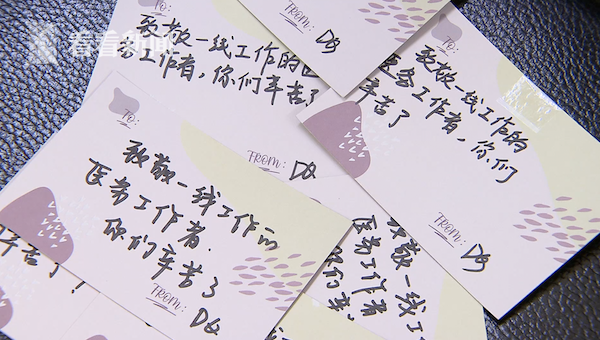 看看新闻
TO:
致敬一线工作的医
务工作者，你们辛苦了
FROM: DQ
TO:
致敬一线工作的
医务工作者，你们
辛苦了
FROM: DQ
TO:
致敬一线工作的
医务工作者.
你们辛苦了
FROM: DQ
敬一线工
医务工作者
你们
辛苦了！